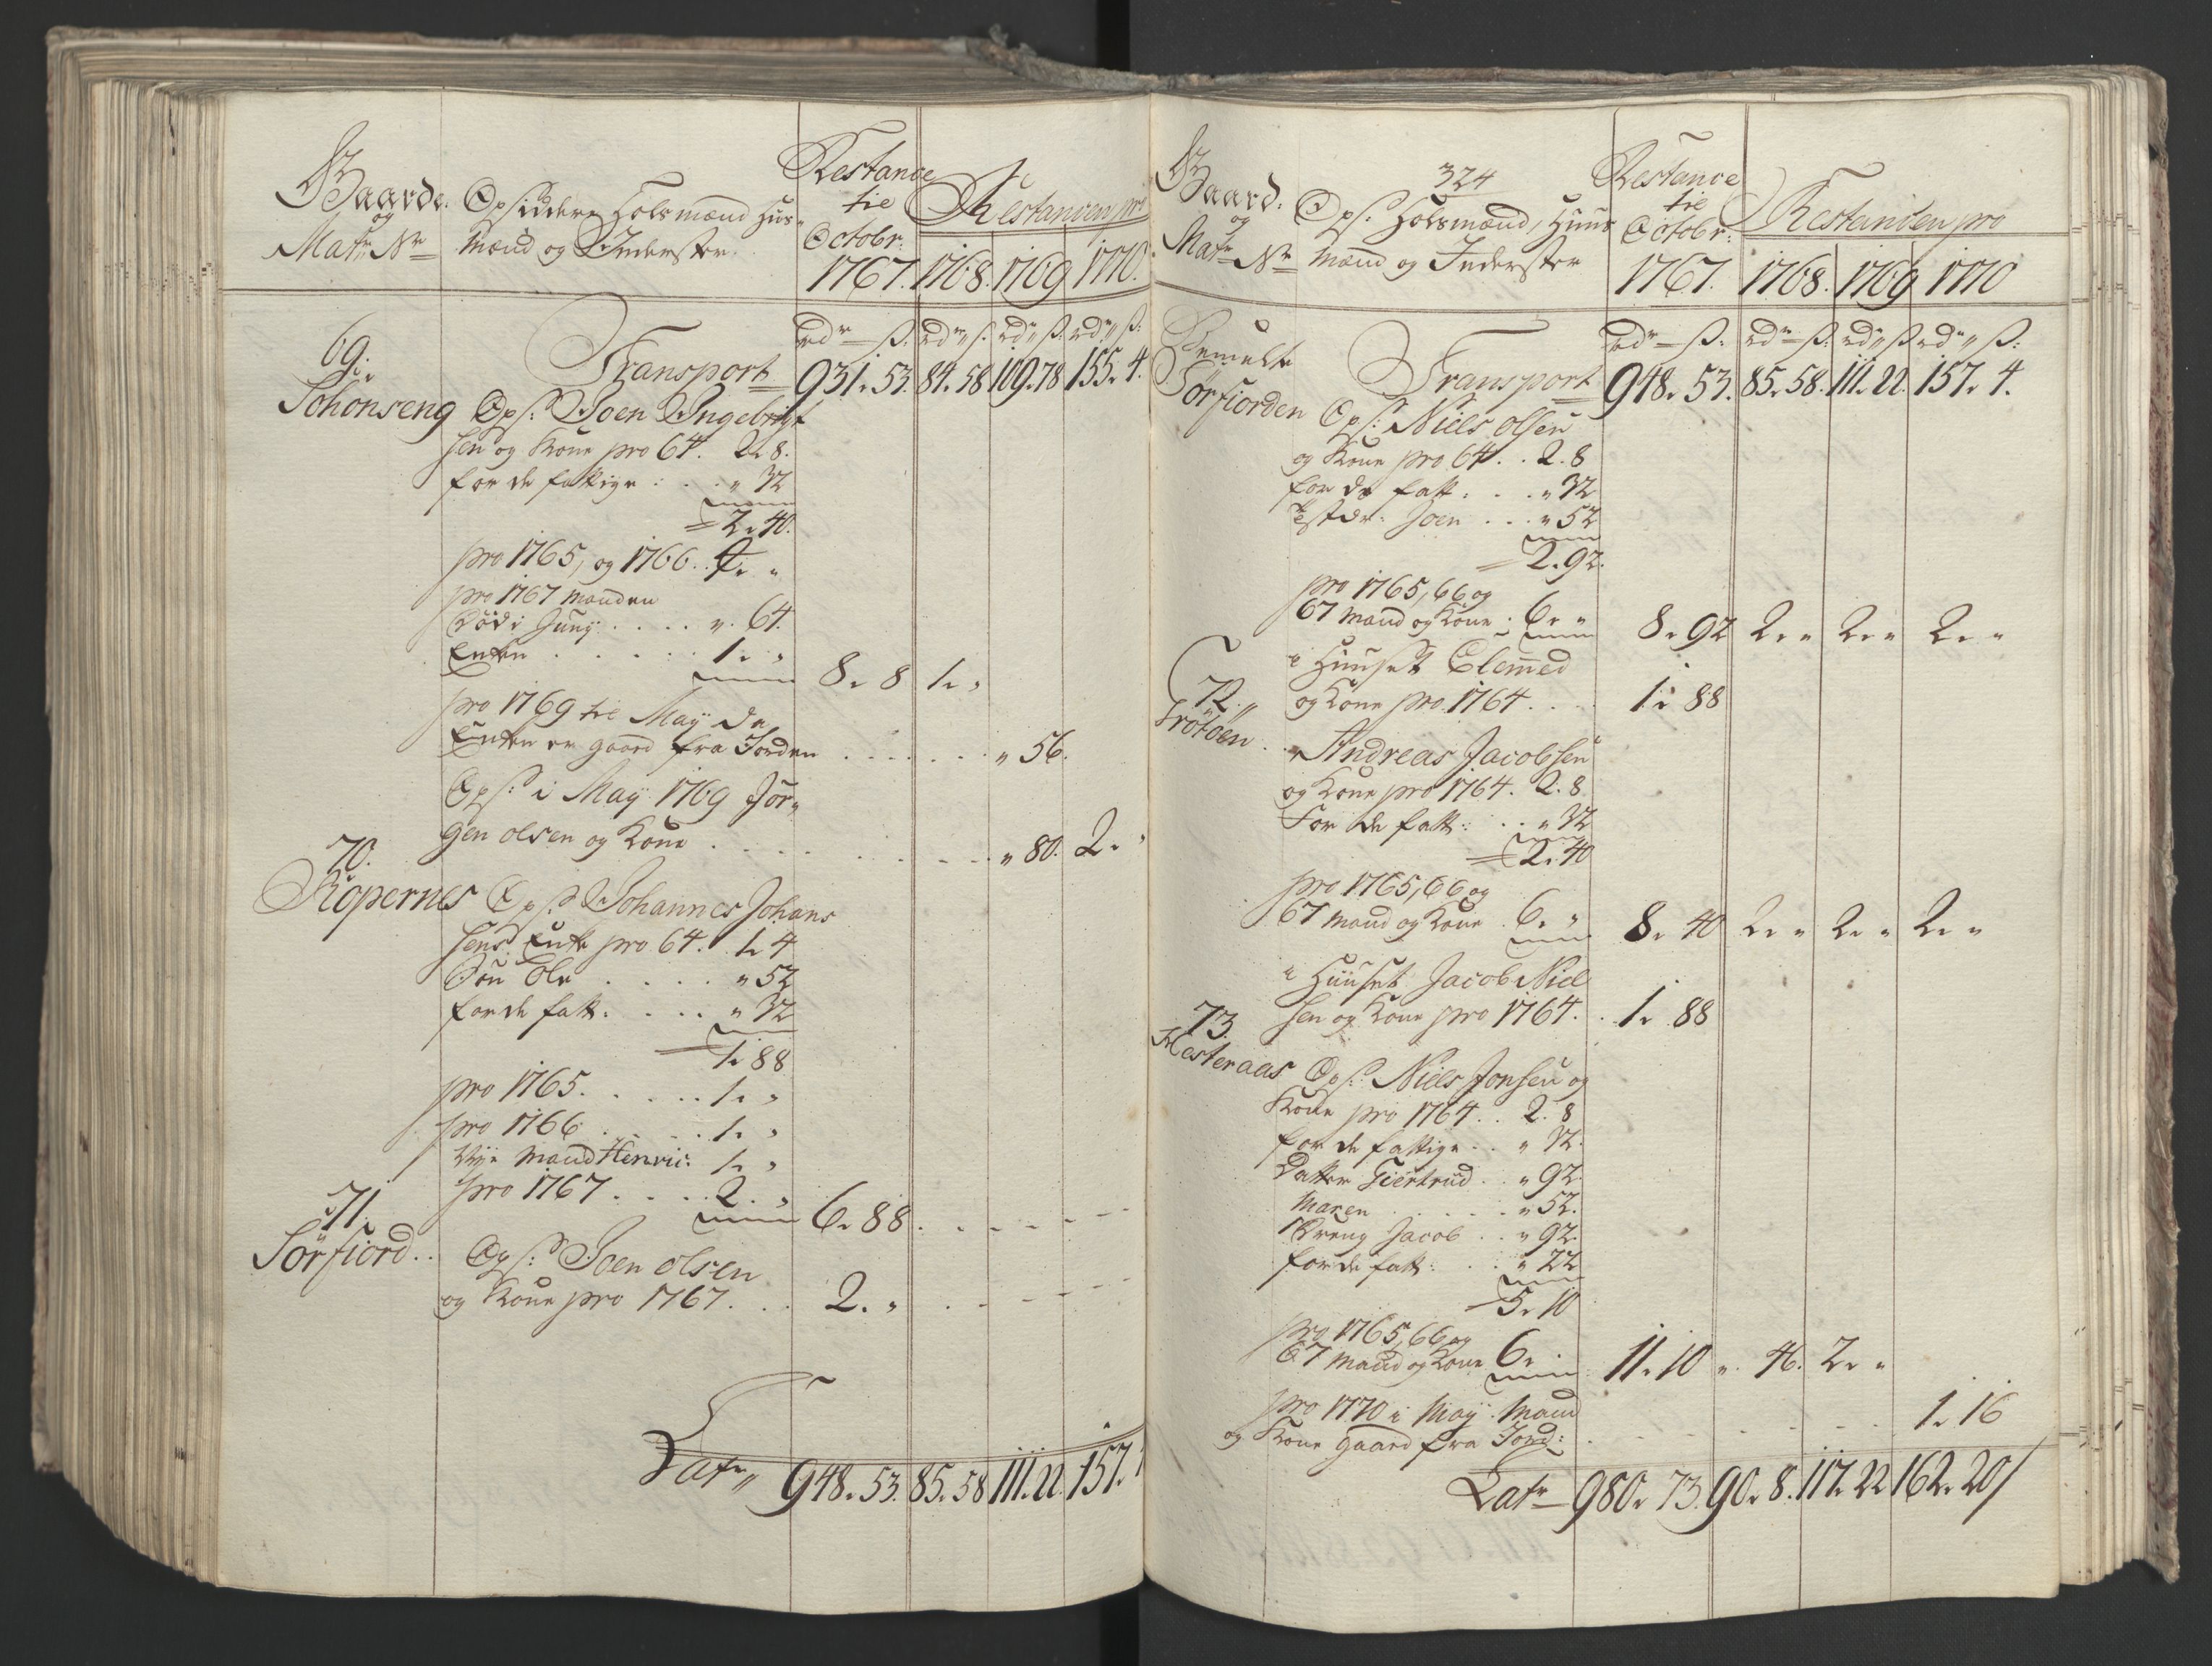 Gaarde. og Matr Nr
Opsiddere Holsmænd Hus-
Mænd og Inderster.
Restance til Octobr: 1767.
Restancen pro
1768. 1769 1770.
rdr ß. rdr ß. rdr ß. rdr ß:
69.
Transport 931. 53. 84. 58 109. 78 155. 4.
Schonseng Ops: Joen Ingebrigt
sen og Kone pro 64. 2. 8.
for de fattige . . . " 32
2. 40.
pro 1765, og 1766. 4. "
pro 1767 Manden
død i Junij . . . . ". 64.
Enken . . . . . 1. " 8. 8 1. "
pro 1769 til Maij da
Enken er gaaed fra Jorden . . . . . . . " 56.
Ops: i Maij 1769 Jør-
gen olsen og Kone . . . . . . . " 80. 2. "
70.
Kopernes Ops: Johannes Johans
sens Enke pro 64. 1. 4
Søn Ole . . . . " 52
for de fatt: . . . " 32
1. 88
pro 1765. . . . . . 1. "
pro 1766 . . . . . 1. "
Nye Mand Henric: 1. "
pro 1767 . . . . 2. " 6. 88. . - - - - -
71.
Sörfiord. . Ops: Joen olsen
og Kone pro 1767. . . 2. " . - - - - -
Latr 948. 53. 85. 58 111. 22 157.
324
Gaard. og Matr Nr
Ops: Holsmænd, Huus
Mænd og Inderster
Restance til Octobr: 1767.
Restancen pro
1768. 1769 1770
rdr ß: rdr ß: rdr ß rdr ß:
Bemelte
Sörfiorden
Transport 948. 53. 85. 58. 111. 22. 157. 4.
Ops: Niels olsen
og Kone pro 64. . 2. 8
for de fatt. . . . " 32
Joen . . . " 52
2. 92.
pro 1765, 66 og
67 Mand og Kone . 6. " 8. 92 2. " 2. " 2. "
i Huuset Clemed
og Kone pro 1764. . . . 1. 88
72.
Trötöen . . " Andreas Jacobsen
og Kone pro 1764. 2. 8
For de fatt: . . " 32
2. 40
pro 1765, 66 og
67 Mand og Kone . 6. " 8. 40 2. " 2. " 2. "
i Huuset Jacob Niel
sen og Kone pro 1764. . 1. 88
73.
Hesteraas Ops: Niels Jonsen og
Kone pro 1764 . . 2. 8
for de fattige . . " 32.
Datter Giertrud . . " 92
Maren . . . . . " 52.
Dreng Jacob . . " 92.
for de fatt: . . . " 22
5. 10
pro 1765, 66 og
67 Mand og Kone 6. " 11. 10 ". 46. 2. "
pro 1770 i Maij. Mand
og Kone gaaed fra Jord: . . - - - - - 1. 16
Latr 980. 73. 90. 8. 117. 22 162. 20/